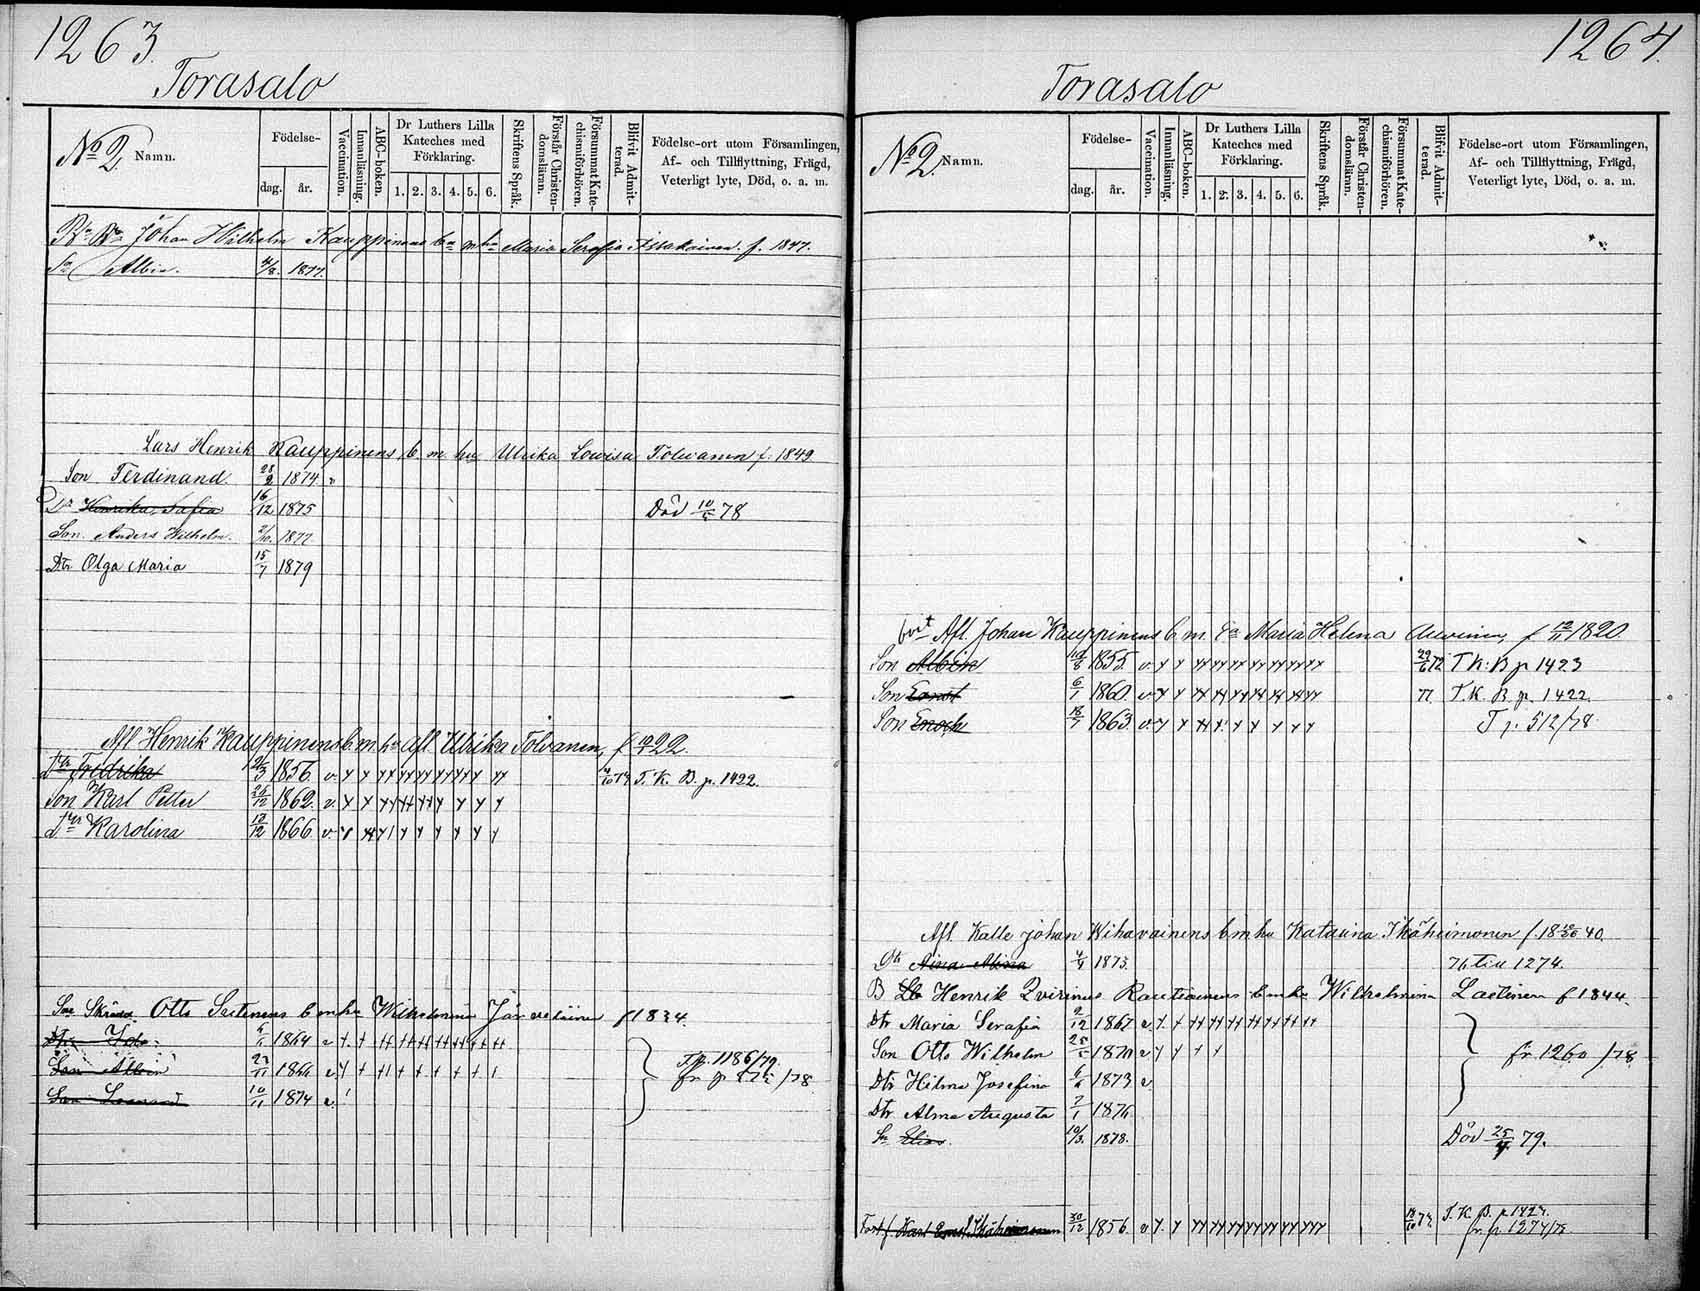 1263.
Torasalo
No 2. Namn.
Födelse-
dag. år.
Vaccination.
Innanläsning.
ABC-boken.
Dr Luthers Lilla Kateches med Förklaring.
1. 2. 3. 4. 5. 6.
Skriftens Språk.
Förstår Christen-domsläran.
Försummat Kate-chismiförhören.
Blifvit Admit-terad.
Födelse-ort utom Församlingen,
Af- och Tillflyttning, Frägd,
Veterligt lyte, Död, o. a. m.
Johan Wilhelm Kauppinens bn m hu Maria Serafia f. 1847.
Sn Albin. 4/8. 1877.
Lars Henrik Kauppinens b m hu Ulrika Lowisa Tolvanen f. 1849
Son Ferdinand 28/2 1874 v
Dr Henrika Sofia 16/12 1875 Död 10/5 78
Son Anders Wilhelm. 2/10. 1877
Dtr Olga Maria 15/7 1879
Afl Henrik Kauppinens b m hu Afl Ulrika Tolvanen, f 22.
Dtr Fredrika 26/3 1856 v T. K. B. p. 1422.
Son Karl Petter 26/12 1862. v.
Dtr Karolina 18/12 1866 v
Otto Sutinens b m hu Wilhelmina f 1834.
Dtr Ida 1864 v
Son Albin 1866 v T.p. 1186/79
Son Leonard 10/11 1874 v. /78
1264.
Torasalo
No 2. Namn.
Födelse-
dag. år.
Vaccination.
Innanläsning.
ABC-boken.
Dr Luthers Lilla Kateches med Förklaring.
1. 2. 3. 4. 5. 6.
Skriftens Språk.
Förstår Christen-domsläran.
Försummat Kate-chismiförhören.
Blifvit Admit-terad.
Födelse-ort utom Församlingen,
Af- och Tillflyttning, Frägd,
Veterligt lyte, Död, o. a. m.
bort Afl. Johan Kauppinens b m. Ea Maria Helena f 12/11 1820
Son Albin 1855 v T K: B p 1423
Son Ernst 6/1 1860 v 77 T. K. B. p. 1422
Son Enoch 18/7 1863 v T p. 512/78
Afl. Kalle Johan Wihavainens b m hu Katarina Ikäheimonen f. 18 40.
Dtr Aina Alina 4/4 1873. 76 till 1274.
B Henrik Qvirinus Rautiainens b m hu Wilhelmina Laitinen f 1844.
Dtr Maria Serafia 2/12 1867 v
Son Otto Wilhelm 28/5 1870 v fr 1260 /78
Dtr Hilma Josefina 1873 v
Dtr Alma Augusta 7/1 1876
Sn Elias. 10/3. 1878. Död 25/4 79.
Karl Ernst Ikäheimonen 30/12 1856. v T. K. B. p 1424.
fr p 1274/78